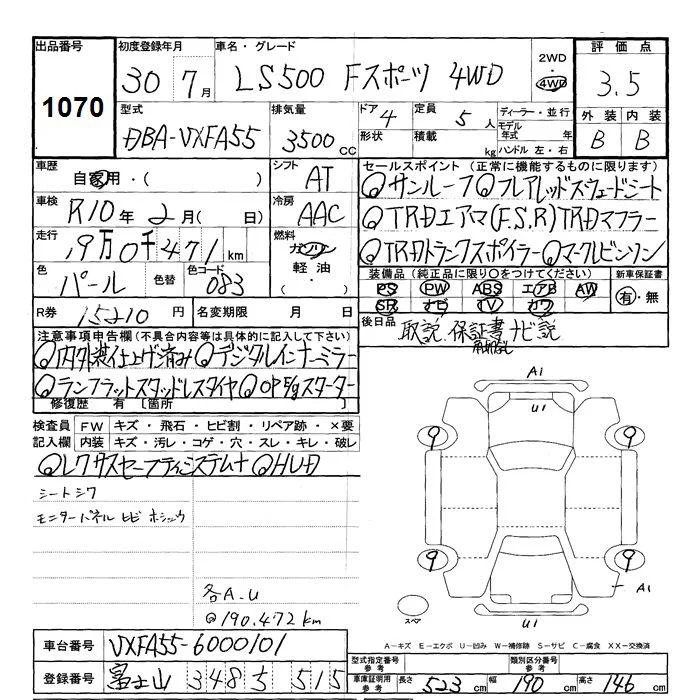 出品番号 初度登録年月 車名・グレード 2WD 4WD 評価点
1070 30 7月 LS500 Fスポーツ 4WD 3.5
型式 排気量 ドア 定員 ディーラー・並行 外装 内装
DBA-VXFA55 3500cc 4 5人 モデル年式 年 B B
形状 積載 kg ハンドル 左・右
車歴 自家用・( ) シフト AT セールスポイント (正常に機能するものに限ります)
車検 R10年2月( 日) 冷房 AAC ◎サンルーフ◎フレアレッドスウェードシート
◎TRDエアロ(F.S.R)TRDマフラー
走行 19万0千471km 燃料 ガソリン 軽油・ ◎TRDトランクスポイラー◎マークレビンソン
色 パール 色替 色コード 083 装備品(純正品に限り○をつけてください) 新車保証書
PS PW ABS エアB AW 有・無
SR ナビ TV カワ
R券 15210円 名変期限 月 日 後日品 取説 保証書 ナビ説
注意事項申告欄(不具合内容等は具体的に記入して下さい)
◎内外装仕上げ済み◎デジタルインナーミラー
◎ランフラットスタッドレスタイヤ◎OP E/gスターター
修復歴 有 [箇所
検査員 FW キズ・飛石・ヒビ割・リペア跡・×要
記入欄 内装 キズ・汚レ・コゲ・穴・スレ・キレ・破レ
◎レクサスセーフティシステム+ ◎HUD
シートシワ
モニターパネル ヒビ ホシュウ
各A.U
@190.472km
A1
U1
9 9
9 9
A1
スペア
U1
A-キズ E-エクボ U-凹み W-補修跡 S-サビ C-腐食 XX-交換済
車台番号 VXFA55-6000101 型式指定番号 参考 類別区分番号 参考
登録番号 富士山 348 5 515 車庫証明用 参考 長さ 523cm 幅 190cm 高さ 146cm